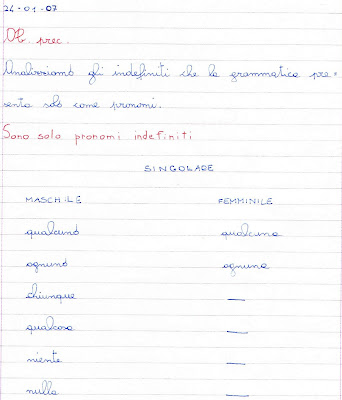 24-01-07
Ob. prec.
Analizziamo gli indefiniti che la grammatica pre=
senta solo come pronomi.
Sono solo pronomi indefiniti
SINGOLARE
MASCHILE FEMMINILE
qualcuno qualcuna
ognuno ognuna
chiunque —
qualcosa —
niente —
nulla —